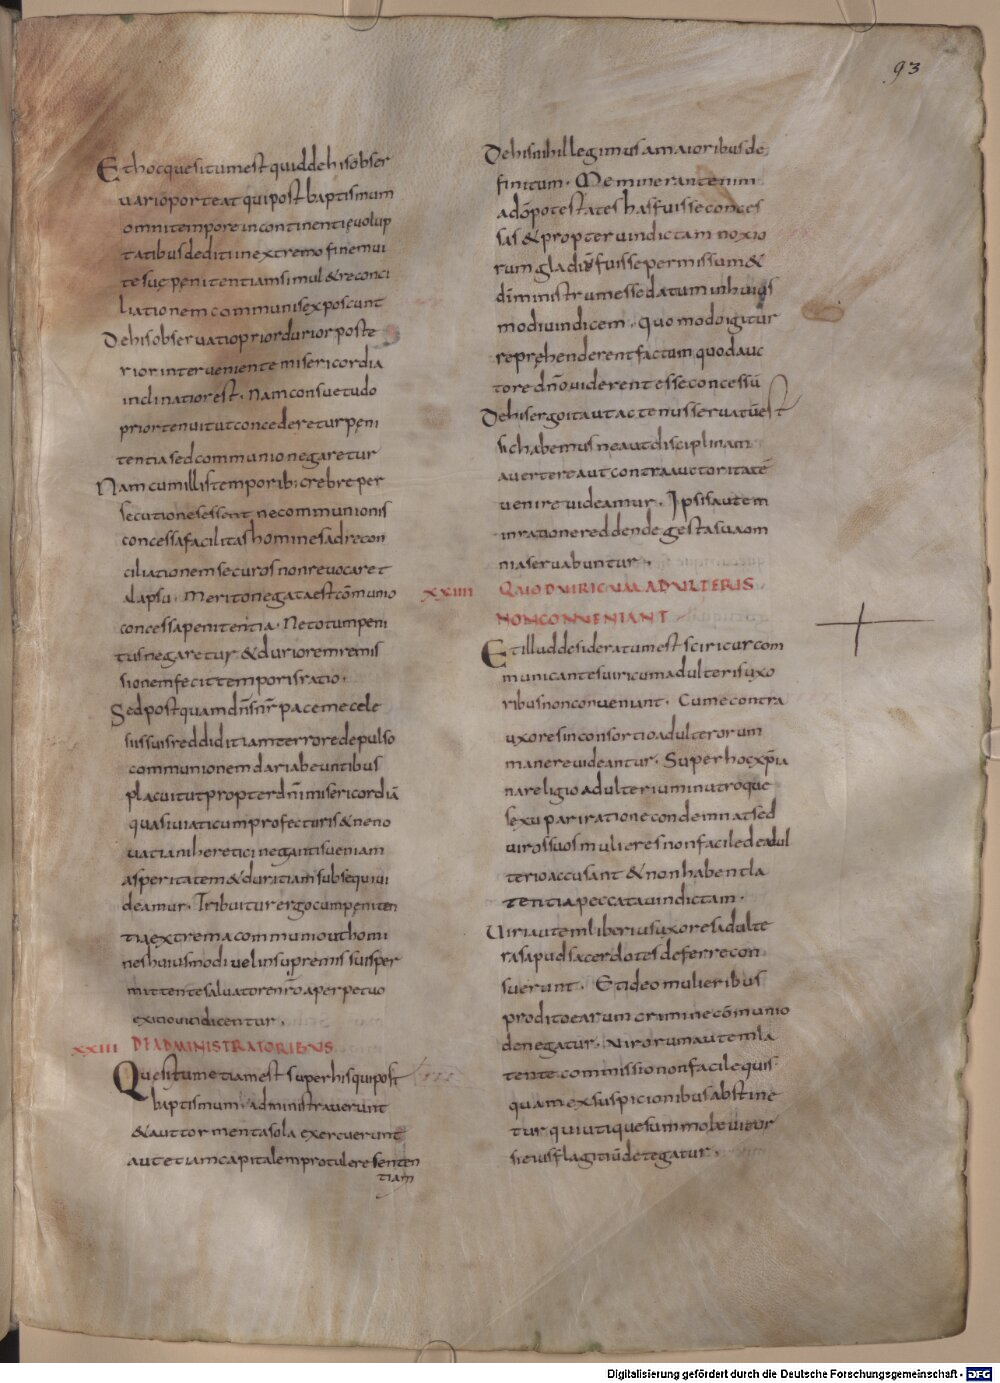 93
Et hocquesitumest quiddehisobser
varioporteatquipostbaptismum
omnitemporeincontinentięvolup
tatibusdeditiinextremofinemvi
tesuępenitentiamsimul&reconci
liationemcommunisexposcunt
Dehisobservatiopriordurior poste
riorintervenientemisericordia
inclinatiorest. Namconsuetudo
priortenuitutconcedereturpęni
tentiasedcommunionegaretur
Namcumillistemporib; crebreper
secutionesessent necommunionis
concessafacilitashominesadrecon
ciliationemsecurosnonrevocaret
alapsu. Meritonegataestcōmunio
concessapenitentia. Netotumpeni
tusnegaretur &durioremremis
sionemfecittemporisratio.
Sedpostquamdn̄snr̄ pacemecele
siissuisreddiditiamterroredepulso
communionemdariabeuntibus
placuitutpropterdn̄imisericordiā
quasiviaticumprofecturis&neno
vatianihereticinegantisveniam
asperitatem&duritiamsubsequivi
deamur. Tribuiturergocumpęniten
tiaextremacommuniouthomi
neshuiusmodi velinsupremissuisper
mittentesalvatorenr̄oaperpetuo
exitiovidicentur.
XXIII DEADMINISTRATORIBUS
Quesitumetiamest superhisquipost
baptismum administraverunt
&auttormentasola exercuerunt
autetiamcapitalemprotuleresenten
tiam
Dehisnihillegimusamaioribusde
finitum. Meminerantenim
ad̄opotestateshasfuisseconces
sas &proptervindictamnoxio
rumgladiūfuissepermissum&
dīministrumessedatuminhuius
modivindicem. Quomodoigitur
repręhenderentfactumquodauc
toredn̄oviderentesseconcessū
Dehisergoitautactenusservatūest
sichabemusneautdisciplinam
avertereautcontraauctoritatē
venirevideamur. Ipsisautem
inrationereddendegestasuaom
niaservabuntur.
XXIIII QUODVIRICUMADULTERIS
NONCONVENIANT
Etilluddesideratumest sciricurcom
municantesviricumadulterisuxo
ribusnonconveniant. Cumecontra
uxoresinconsortioadulterorum
manerevideantur. Superhocxp̄ia
nareligioadulteriuminutroque
sexupariratione condemnatsed
virossuosmulieresnonfaciledeadul
terioaccusant &nonhabentla
tentiapeccatavindictam.
Viriautemliberiusuxoresadulte
rasapudsacerdotesdeferrecon
suerunt. Etideomulieribus
proditoearumcriminecōmunio
denegatur. Virorumautemla
tentecommissiononfacilequis
quamexsuspicionibusabstine
turquiutiquesummobevitur
sieiusflagitiūdetegatur.
Digitalisierung gefördert durch die Deutsche Forschungsgemeinschaft - DFG